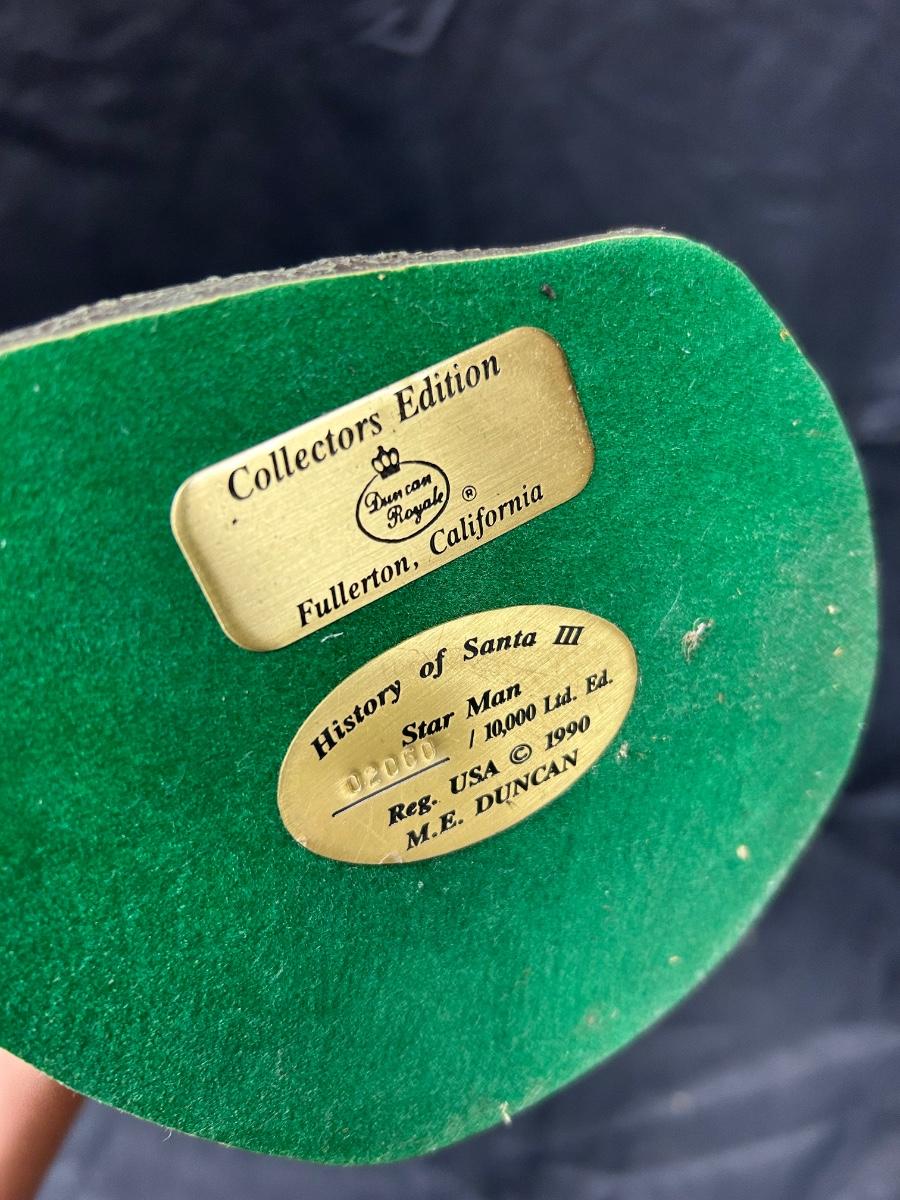 Collectors Edition
Duncan
Royale ®
Fullerton, California
History of Santa III
Star Man
02060 / 10,000 Ltd. Ed.
Reg. USA © 1990
M.E. DUNCAN